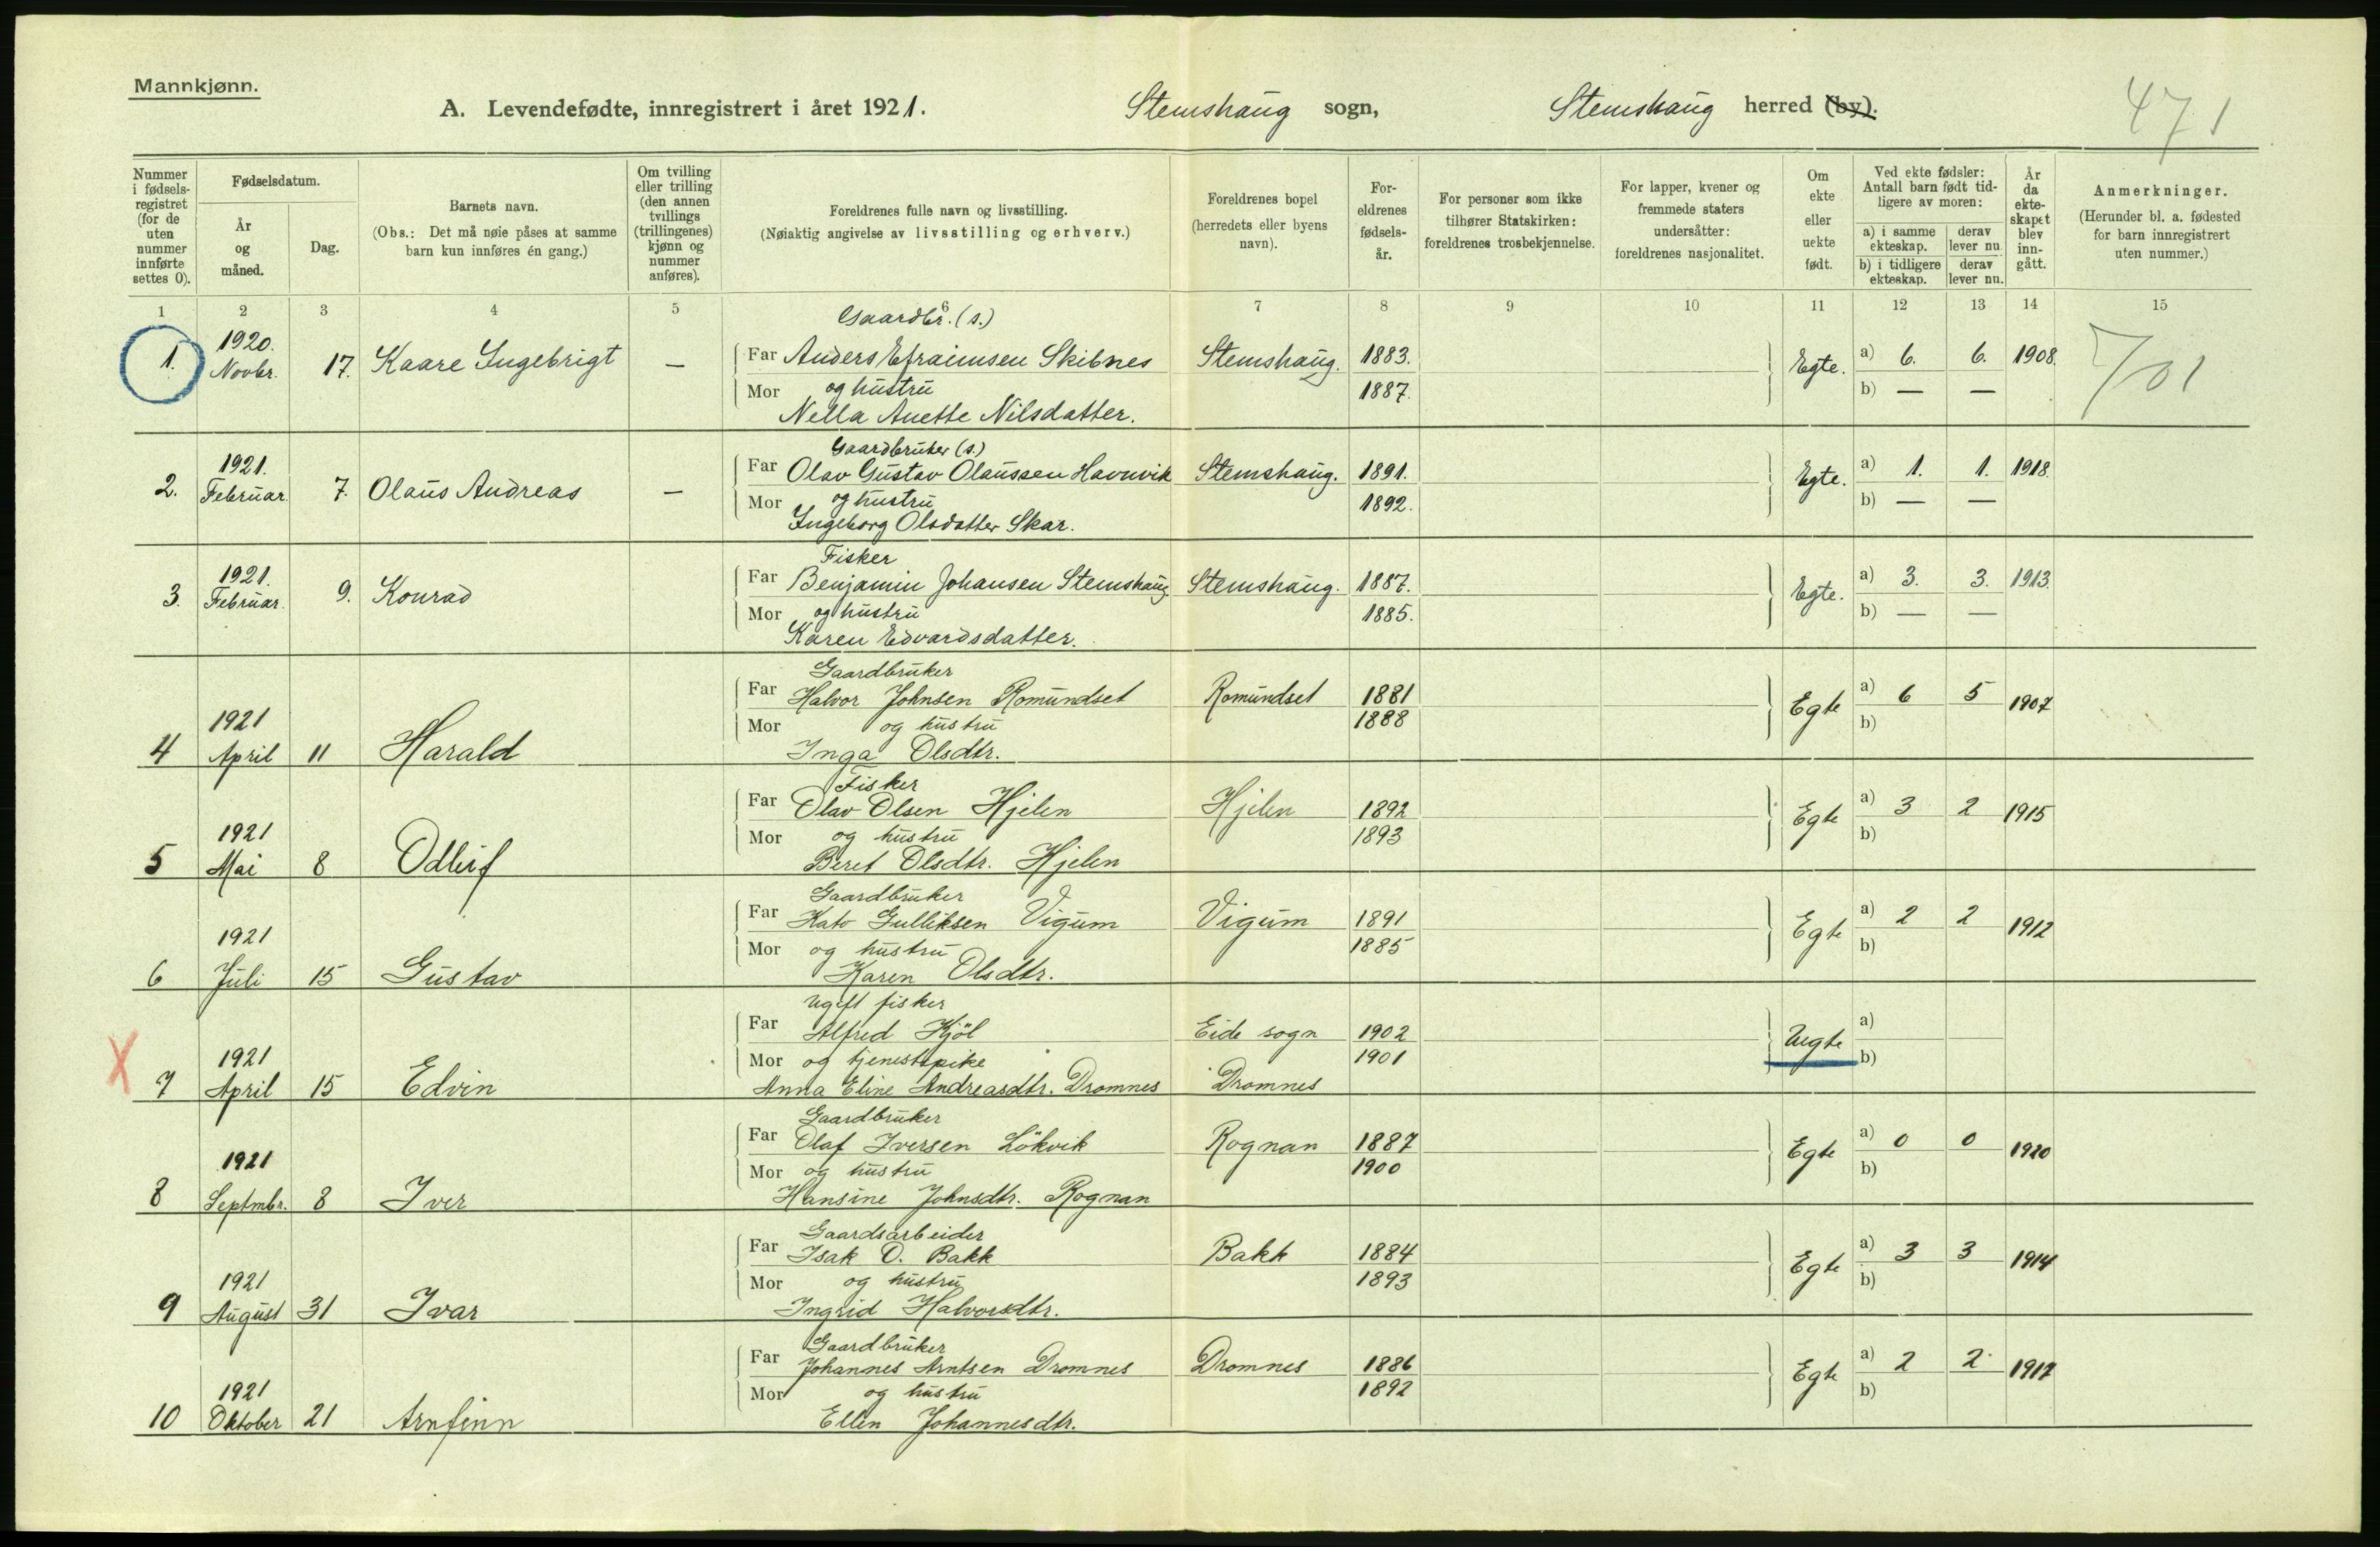 Mannkjønn.
A. Levendefødte, innregistrert i året 1921. Stemshaug sogn, Stemshaug herred (by). 471
Nummer i fødsels- registret (for de uten nummer innførte settes 0).
Fødselsdatum.
År og måned.
Dag.
Barnets navn.
(Obs.: Det må nøie påses at samme barn kun innføres én gang.)
Om tvilling eller trilling (den annen tvillings (trillingenes) kjønn og nummer anføres).
Foreldrenes fulle navn og livsstilling.
(Nøiaktig angivelse av livsstilling og erhverv.)
Foreldrenes bopel (herredets eller byens navn).
For- eldrenes fødsels- år.
For personer som ikke tilhører Statskirken: foreldrenes trosbekjennelse.
For lapper, kvener og fremmede staters undersåtter: foreldrenes nasjonalitet.
Om ekte eller uekte født.
Ved ekte fødsler: Antall barn født tid- ligere av moren:
a) i samme ekteskap. derav lever nu.
b) i tidligere ekteskap. derav lever nu.
År da ekte- skapet blev inn- gått.
Anmerkninger.
(Herunder bl. a. fødested for barn innregistrert uten nummer.)
1 2 3 4 5 6 7 8 9 10 11 12 13 14 15
Gaardbr. (s.)
1. 1920. Novbr. 17. Kaare Ingebrigt — Far Anders Efraimsen Skibnes Stemshaug. 1883. Egte. a) 6. 6. 1908. 701
Mor og hustru 1887. b) — —
Nella Anette Nilsdatter.
Gaardbruker (s.)
2. 1921. Februar. 7. Olaus Andreas — Far Olav Gustav Olaussen Havnvik Stemshaug. 1891. Egte. a) 1. 1. 1918.
Mor og hustru 1892. b) — —
Ingeborg Olsdatter Skar.
Fisker
3. 1921. Februar. 9. Konrad Far Benjamin Johansen Stemshaug Stemshaug. 1887. Egte. a) 3. 3. 1913.
Mor og hustru 1885. b) — —
Karen Edvardsdatter.
Gaardbruker
4 1921 April 11 Harald Far Halvor Johnsen Romundset Romundset 1881 Egte a) 6 5 1907
Mor og hustru 1888 b)
Inga Olsdtr.
Fisker
5 1921 Mai 8 Odleif Far Olav Olsen Hjelen Hjelen 1892 Egte a) 3 2 1915
Mor og hustru 1893 b)
Beret Olsdtr. Hjelen
Gaardbruker
6 1921 Juli 15 Gustav Far Kato Gulliksen Vigum Vigum 1891 Egte a) 2 2 1912
Mor og hustru 1885 b)
Karen Olsdtr.
Ugift fisker
X 7 1921 April 15 Edvin Far Alfred Kjöl Eide sogn 1902 Uegte a)
Mor og tjenestepike 1901 b)
Anna Eline Andreasdtr. Dromnes Dromnes
Gaardbruker
8 1921 Septmbr. 8 Iver Far Olaf Iversen Lökvik Rognan 1887 Egte a) 0 0 1920
Mor og hustru 1900 b)
Hansine Johnsdtr. Rognan
Gaardsarbeider
9 1921 August 31 Ivar Far Isak O. Bakk Bakk 1884 Egte a) 3 3 1914
Mor og hustru 1893 b)
Ingrid Halvorsdtr.
Gaardbruker
10 1921 Oktober 21 Arnfinn Far Johannes Arntsen Dromnes Dromnes 1886 Egte a) 2 2 1917
Mor og hustru 1892 b)
Ellen Johannesdtr.